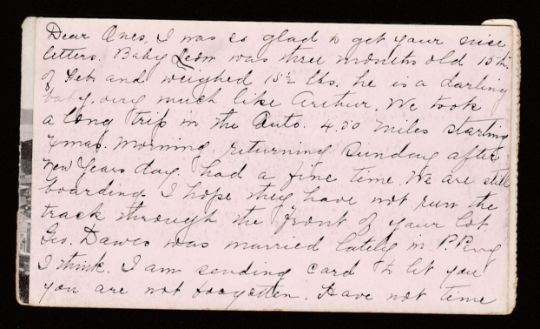 Dear Ones, I was so glad to get your nice
letters. Baby Leon was three months old 15th
of Feb and weighed 15½ lbs. he is a darling
baby, very much like Arthur. We took
a long trip in the Auto. 400 miles starting
Xmas. morning returning Sunday after
New Years day. had a fine time. We are still
boarding. I hope they have not run the
track through the front of your lot.
Geo. Dawes was married lately in P.
I think. I am sending card to let you
you are not forgotten. Have not time